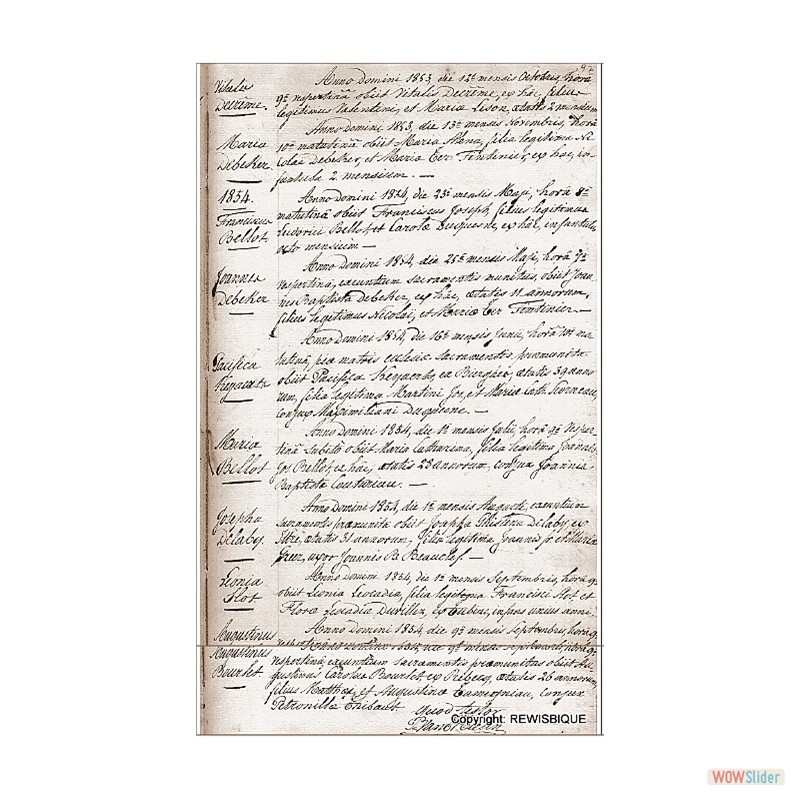 97
Vitalis
Decrême.
Anno Domini 1853, die 12ª mensis Octobris, horâ
9ª vespertinâ obiit Vitalis Decrême, ex hac, filius
legitimus Valentini, et Maria Lison, ætatis 2 mensium
Maria
Debeker.
Anno Domini 1853, die 13ª mensis Novembris, horâ
10ª matutinâ obiit Maria filia legitima Ni-
colai Debeker, et Maria Ter. Timtinier, ex hac, in-
fantula 2. mensium. —
1854.
Franciscus
Bellot
Anno Domini 1854, die 23ª mensis Maji, horâ 8ª
matutinâ obiit Franciscus Joseph, filius legitimus
Ludovici Bellot, et Carolæ Duquesne, ex hâc, infantulus
octo mensium —
Joannes
Debeker
Anno Domini 1854, die 25ª mensis Maji, horâ 7ª
vespertinâ, sacramentis munitus, obiit Joan-
nes Baptista Debeker, ex hâc, ætatis 11 annorum,
filius legitimus Nicolai, et Mariæ Ter Timtinier. —
Pacifica
Anno Domini 1854, die 16ª mensis Junii, horâ 10ª ma-
tutinâ, piæ matris ecclesiæ sacramentis præmunita
obiit Pacifica ex ætatis 39 anno-
rum, filia legitima Martini Jos, et Maria Cath.
conjux Maximiliani Duquesne. —
Maria
Bellot
Anno Domini 1854, die 1ª mensis Julii, horâ 9ª vesper-
tinâ subito obiit Maria Catharina, filia legitima Joannis
Jos. Bellot, ex hâc, ætatis 23 annorum, conjux Joannis
Baptistæ Couturiau. —
Josepha
Delaby.
Anno Domini 1854, die 1ª mensis Augusti,
sacramentis præmunita obiit Josepha Ghislena Delaby, ex
ætatis 31 annorum, filia legitima Joannis Jos. et Maria
uxor Joannis B. Beauclef. —
Leonia
Slot
Anno Domini 1854, die 1ª mensis Septembris, horâ 9ª
obiit Leonia Leocadia, filia legitima Francisci Slot et
Floræ Leocadia infans unius anni.
Augustinus
Anno Domini 1854, die 9ª mensis Septembris, horâ 9ª
Augustinus
Bourlet.
vespertinâ, sacramentis præmunitus obiit Au-
gustinus Carolus Bourlet, ex Rebecq, ætatis 26 annorum,
filius Matthæi, et Augustinæ conjux
Petronillæ Thibaut.
quod testor
Copyright: REWISBIQUE
WOWSlider